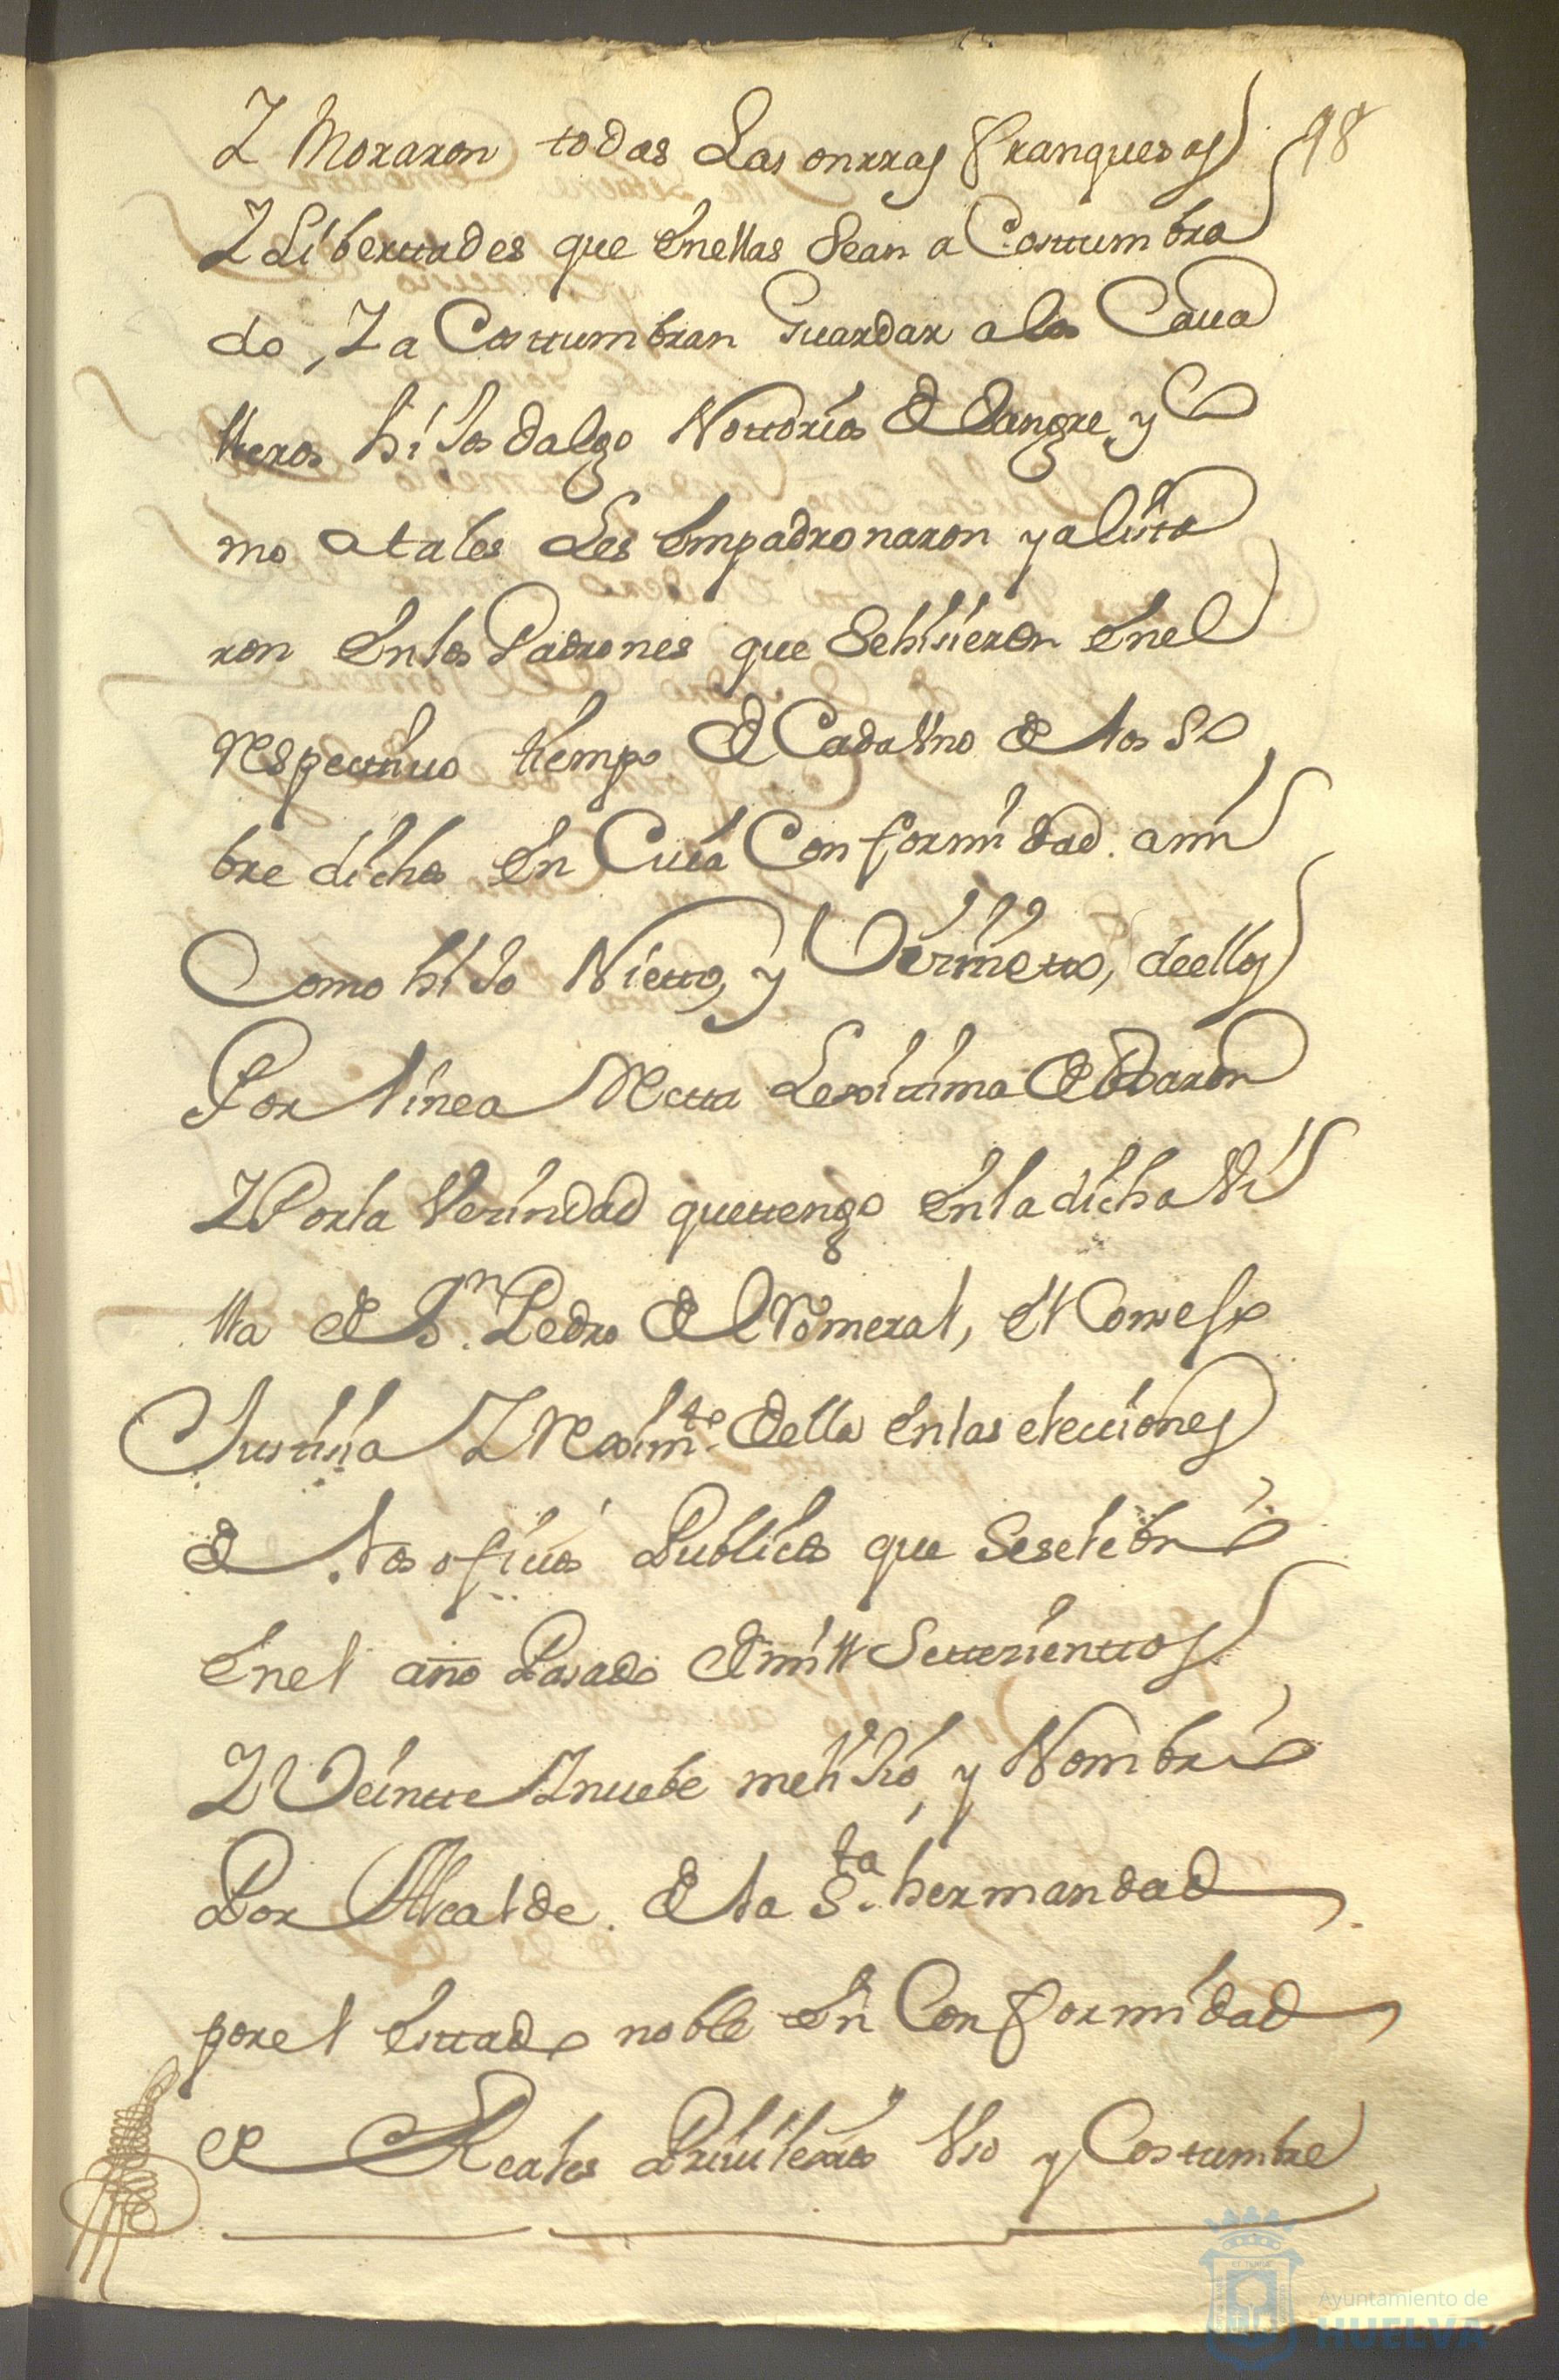 Y Moraron todas Las onrras franquesas 98
Y Livertades que enellas Sean a Costtumbra
do, Y a Costtumbran Guardar a los Cava
lleros hiJos dalgo Nottorios de Sangre, y Co
mo atales Les empadronaron y alista
ron en los Padrones que Sehisieron enel
respecttivo tiempo de Cada Vno de los So
bre dichos en Cuia Conformidad. a mi
Como hiJo Nietto, y Visnietto, deellos
Por linea Rectta Lexittima de Varon
Y Porla Vezindad quettengo enla dicha Vi
lla de Sn. Pedro del Romeral, el Consejo
Justtisia Y Reximto. della enlas elecciones
de los oficios Publicos que Seselebro
enel año Pasado de mill Settezienttos
Y Veintte Y nuebe me eliJio, y Nombro
Por Alcalde. de la Sta. hermandad
porel esttado noble en Conformidad
de Reales Privilexios Vso y Costumbre
Ayuntamiento de
HUELVA